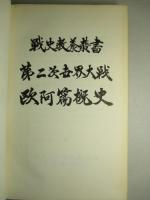 戦史教養叢書
第二次世界大戦
欧阿篇概史